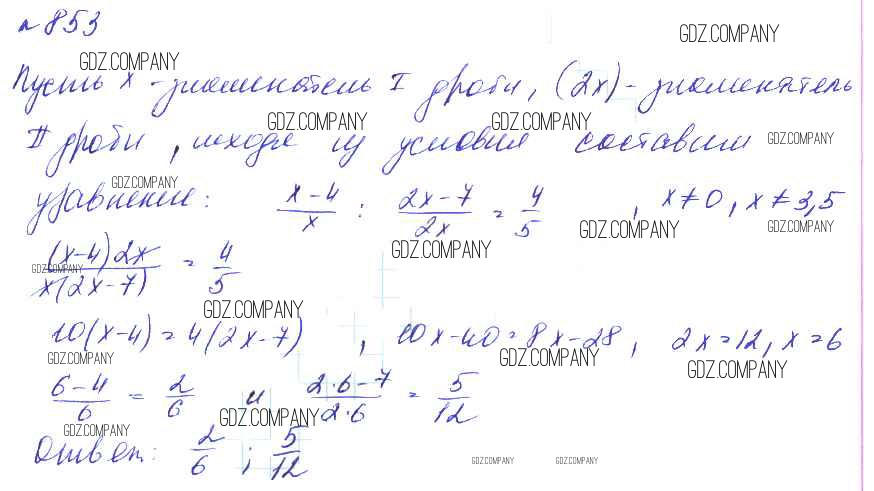 №853
GDZ.COMPANY
GDZ.COMPANY
Пусть x - знаменатель I дроби, (2x) - знаменатель
GDZ.COMPANY GDZ.COMPANY
II дроби, исходя из условия составим
GDZ.COMPANY
GDZ.COMPANY
уравнение: (x-4)/x : (2x-7)/2x = 4/5, x≠0, x≠3,5
GDZ.COMPANY GDZ.COMPANY
GDZ.COMPANY
(x-4)2x / x(2x-7) = 4/5
GDZ.COMPANY
GDZ.COMPANY
10(x-4) = 4(2x-7), 10x-40=8x-28, 2x=12, x=6
GDZ.COMPANY GDZ.COMPANY GDZ.COMPANY
(6-4)/6 = 2/6 и (2·6-7)/(2·6) = 5/12
GDZ.COMPANY
GDZ.COMPANY
Ответ: 2/6 ; 5/12
GDZ.COMPANY GDZ.COMPANY